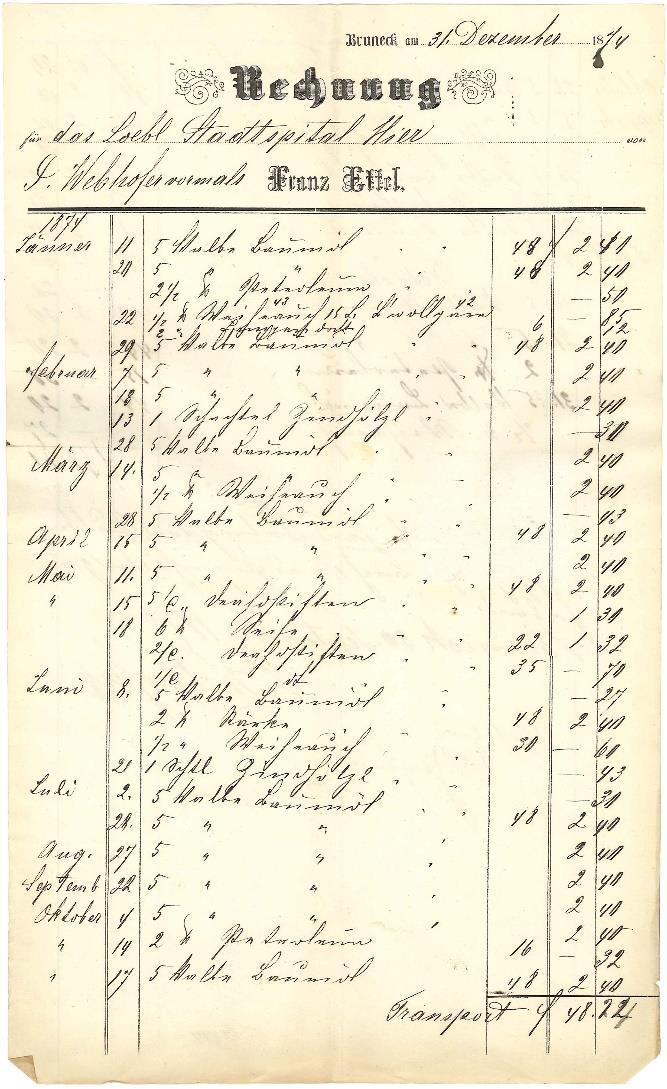 Bruneck am 31. Dezember 1874
Rechnung
für das Loebl. Stadtspital Hier von
J. Webhofer vormals Franz Ettel.
1874
Jänner 11 5 Halbe Baumöl 48 f 2 40
20 5 " " 48 2 40
2 1/2 ℔ Petroleum — 50
22 1/2 ℔ Weihrauch 43 15 L. 42 — 85
2 6 12
29 5 Halbe Baumöl 48 2 40
Februar 7 5 " " 2 40
18 5 " " 2 40
13 1 Schachtel Zündhölzl — 30
28 5 Halbe Baumöl 2 40
März 14. 5 " 2 40
1/2 ℔ Weihrauch — 43
28 5 Halbe Baumöl 48 2 40
April 15 5 " " 2 40
Mai 11. 5 " " 48 2 40
" 15 5 Drahtstiften 1 30
18 6 ℔ Seife 22 1 32
2 Drahtstiften 35 — 70
1 dt — 27
Juni 8. 5 Halbe Baumöl 48 2 40
2 ℔ Stärke 30 — 60
1/2 " Weihrauch — 43
21 1 Schtl Zündhölzl — 30
Juli 2. 5 Halbe Baumöl 48 2 40
24. 5 " " 2 40
Aug. 27 5 " " 2 40
Septemb 22 5 " " 2 40
Oktober 4 5 " " 2 40
" 14 2 ℔ Petroleum 16 — 32
" 17 5 Halbe Baumöl 48 2 40
Transport f 48.22